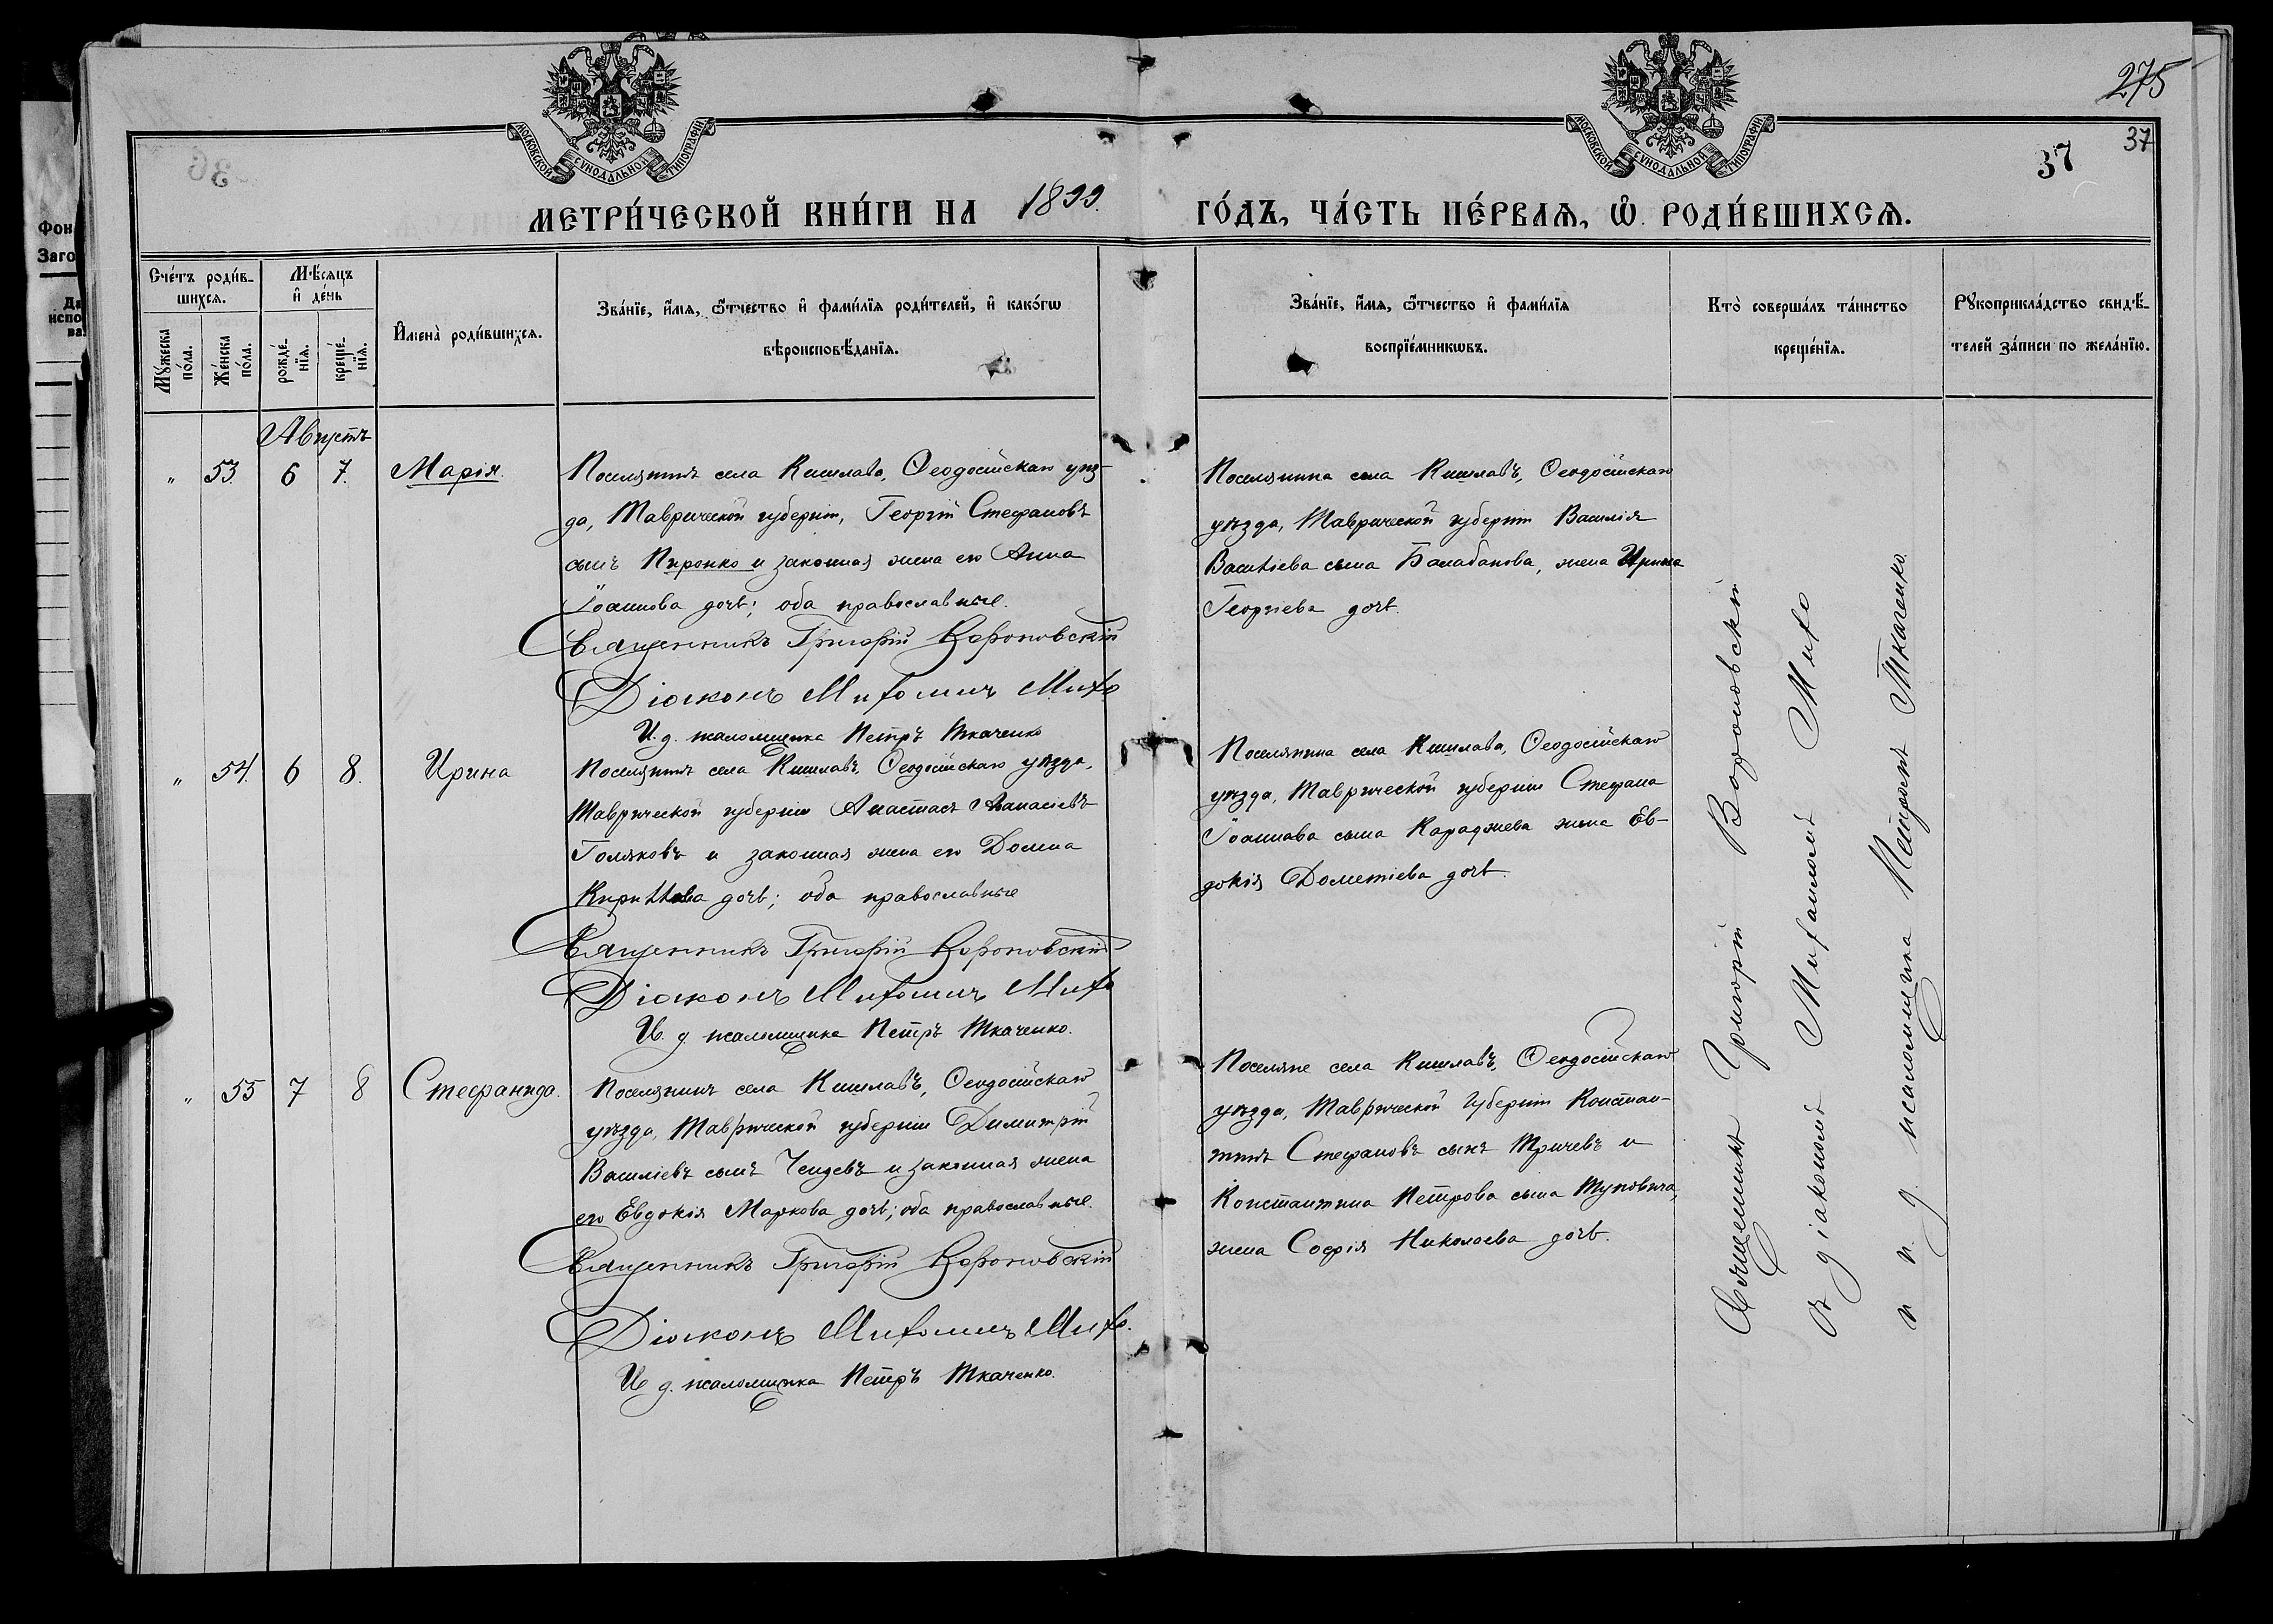 275
37
37
МОСКОВСКОЙ СѴНОДАЛЬНОЙ ТИПОГРАФІИ
МОСКОВСКОЙ СѴНОДАЛЬНОЙ ТИПОГРАФІИ
МЕТРИ́ЧЕСКОЙ КНИ́ГИ НА 1899. ГО́ДЪ, ЧА́СТЬ ПЕ́РВАѦ, Ѽ РОДИ́ВШИХСѦ.
Сче́тъ роди́в-
шихсѧ.
Мꙋ́жеска по́ла.
Же́нска по́ла.
Мѣ́сѧцъ
и҆ де́нь
рожде́-
нїѧ.
креще́-
нїѧ.
И҆мена̀ роди́вшихсѧ.
Зва́нїе, и҆́мѧ, ѻ҆́тчество и҆ фами́лїѧ роди́телей, и҆ како́гѡ
вѣроисповѣ́данїѧ.
Зва́нїе, и҆́мѧ, ѻ҆́тчество и҆ фами́лїѧ
воспрїе́мникѡвъ.
Кто̀ соверша́лъ та́инство
креще́нїѧ.
Рꙋкоприкла́дство свидѣ́-
телей за́писи по жела́нїю.
Августъ
" 53. 6 7. Марія.
Поселянинъ села Кишлава, Ѳеодосійскаго уѣз-
да, Таврической губерніи, Георгій Стефановъ
сынъ Пиронко и законная жена его Анна
Іоаннова дочь; оба православные.
Священникъ Григорій Вороновскій
Діаконъ Митрофанъ Михо
И. д. псаломщика Петръ Ткаченко
Поселянина села Кишлавъ, Ѳеодосійскаго
уѣзда, Таврической губерніи Василія
Васильева сына Балабанова, жена Ирина
Георгіева дочь.
" 54. 6 8. Ирина
Поселянинъ села Кишлавъ, Ѳеодосійскаго уѣзда,
Таврической губерніи Анастасъ Аѳанасіевъ
Голяковъ и законная жена его Домна
Кириллова дочь; оба православные
Священникъ Григорій Вороновскій
Діаконъ
И. д. псаломщика Петръ Ткаченко.
Поселянина села Кишлава, Ѳеодосійскаго
уѣзда, Таврической губерніи Стефана
Іоаннова сына Караджева жена Ев-
докія Дометіева дочь.
" 55 7 8 Стефанида.
Поселянинъ села Кишлавъ, Ѳеодосійскаго
уѣзда, Таврической губерніи Димитрій
Василіевъ сынъ Чендевъ и законная жена
его Евдокія Маркова дочь; оба православные.
Священникъ Григорій Вороновскій
Діаконъ
И. д. псаломщика Петръ Ткаченко.
Поселяне села Кишлавъ, Ѳеодосійскаго
уѣзда, Таврической губерніи Констан-
тинъ Стефановъ сынъ Тричевъ и
Константина Петрова сына Туковича,
жена Софія Николаева дочь.
Священникъ Григорій Вороновскій
съ діакономъ
и и. д. псаломщика Петромъ Ткаченко.